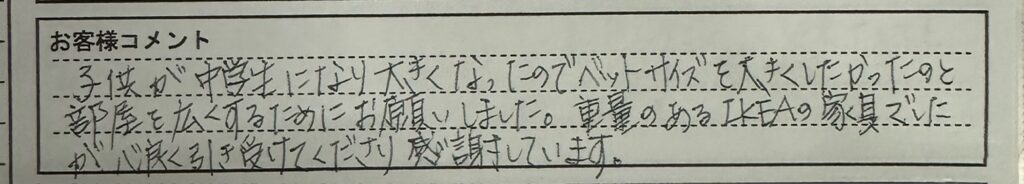 お客様コメント
子供が中学生になり大きくなったのでベットサイズを大きくしたかったのと
部屋を広くするためにお願いしました。重量のあるIKEAの家具でした
が心良く引き受けてくださり感謝しています。